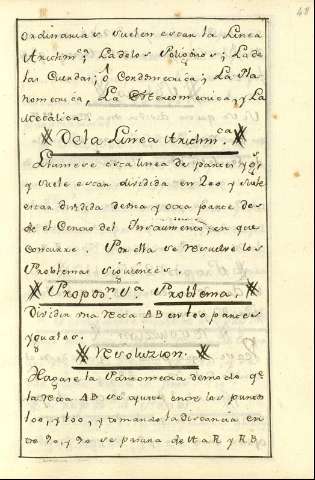 48
ordinarias suelen estar la Linea
Arithm.ca; La de los Poligonos; La de
las Cuerdas; ô Cordometrica; La Pla
nometrica, La Estereometrica, y La
Metalica.
De la Linea Arithm.ca
Llamese esta linea de partes yg.s
y suele estar dividida en 200 y suele
estar dividida de una y otra parte des
de el Centro del Instrumento, en que
concurre. Por ella se resuelve los
Problemas siguientes.
Propos.n 1.a Problema.
Dividir una recta AB en 100 partes
yguales.
Resoluzion.
Hagase la Pantometra de modo q.e
la recta AB se ajuste entre los puntos
100, y 100, y tomando la distancia en
tre 70, y 70 se pasara de A a R y RB